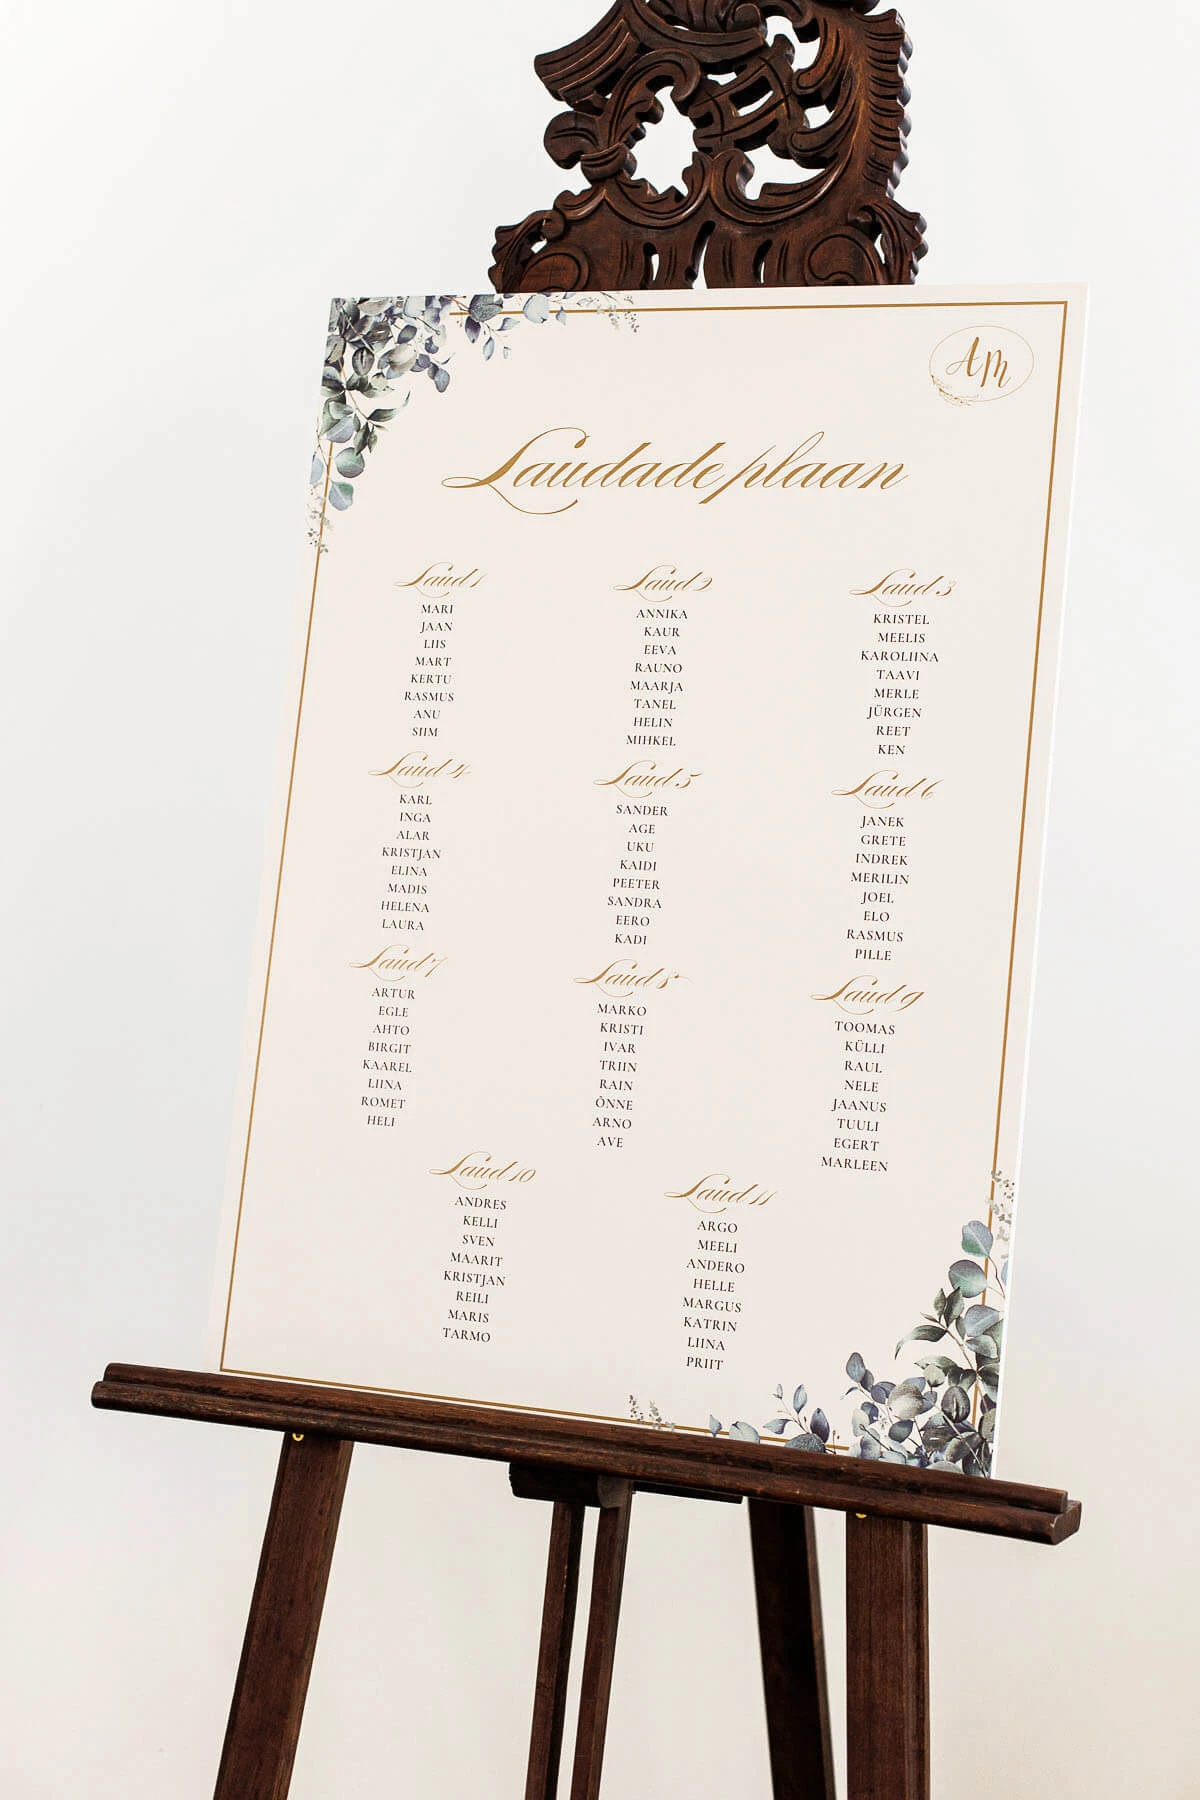 AM
Laudade plaan
Laud 1
MARI
JAAN
LIIS
MART
KERTU
RASMUS
ANU
SIIM
Laud 2
ANNIKA
KAUR
EEVA
RAUNO
MAARJA
TANEL
HELIN
MIHKEL
Laud 3
KRISTEL
MEELIS
KAROLIINA
TAAVI
MERLE
JÜRGEN
REET
KEN
Laud 4
KARL
INGA
ALAR
KRISTJAN
ELINA
MADIS
HELENA
LAURA
Laud 5
SANDER
AGE
UKU
KAIDI
PEETER
SANDRA
EERO
KADI
Laud 6
JANEK
GRETE
INDREK
MERILIN
JOEL
ELO
RASMUS
PILLE
Laud 7
ARTUR
EGLE
AHTO
BIRGIT
KAAREL
LIINA
ROMET
HELI
Laud 8
MARKO
KRISTI
IVAR
TRIIN
RAIN
ÕNNE
ARNO
AVE
Laud 9
TOOMAS
KÜLLI
RAUL
NELE
JAANUS
TUULI
EGERT
MARLEEN
Laud 10
ANDRES
KELLI
SVEN
MAARIT
KRISTJAN
REILI
MARIS
TARMO
Laud 11
ARGO
MEELI
ANDERO
HELLE
MARGUS
KATRIN
LIINA
PRIIT